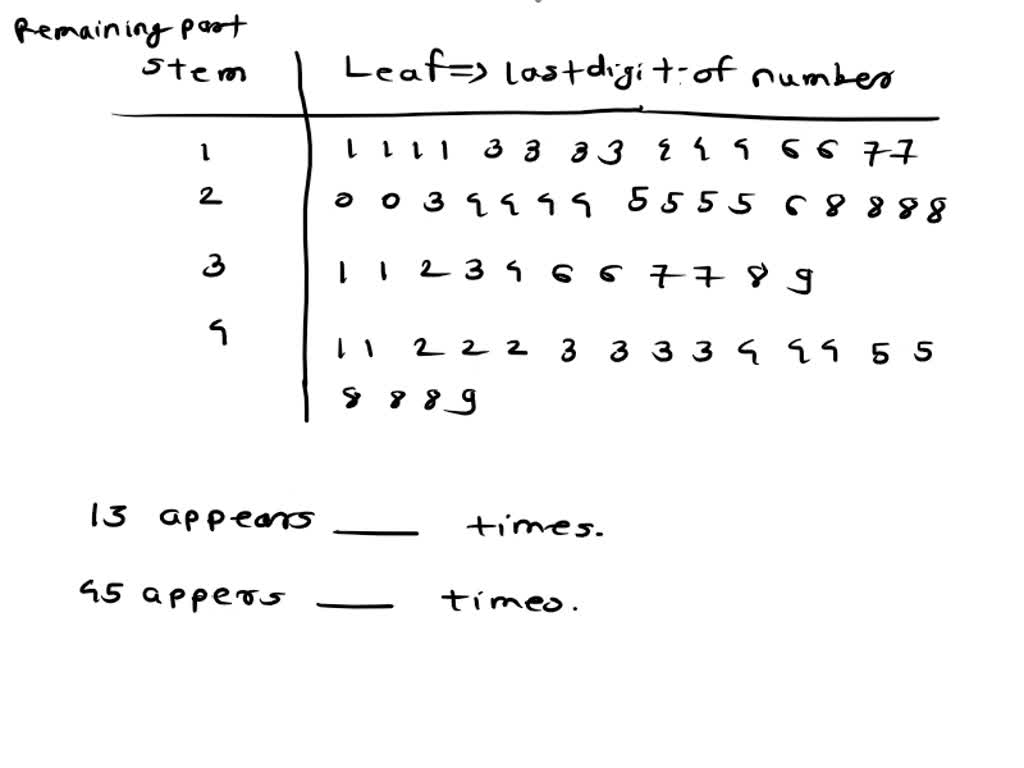 Remaining part
Stem Leaf => last digit of number
1 1 1 1 1 3 3 3 3 4 4 4 6 6 7 7
2 0 0 3 4 4 4 4 5 5 5 5 6 8 8 8 8
3 1 1 2 3 4 6 6 7 7 8 9
4 1 1 2 2 2 3 3 3 3 4 4 4 5 5
8 8 8 9
13 appears ____ times.
45 appers ____ times.